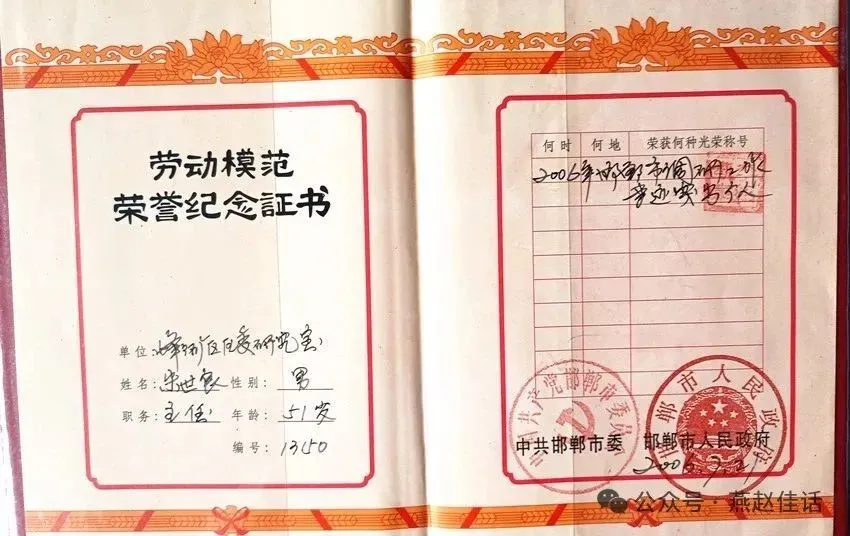 劳动模范
荣誉纪念証书
单位: 峰峰矿区区委研究室
姓名: 宋世良 性别: 男
职务: 主任 年龄: 51岁
编号: 1350
何时 何地 荣获何种光荣称号
2006年 邯郸市调研工作
突出贡献个人
中国共产党邯郸市委员会
邯郸市人民政府
中共邯郸市委 邯郸市人民政府
2006.
公众号·燕赵佳话